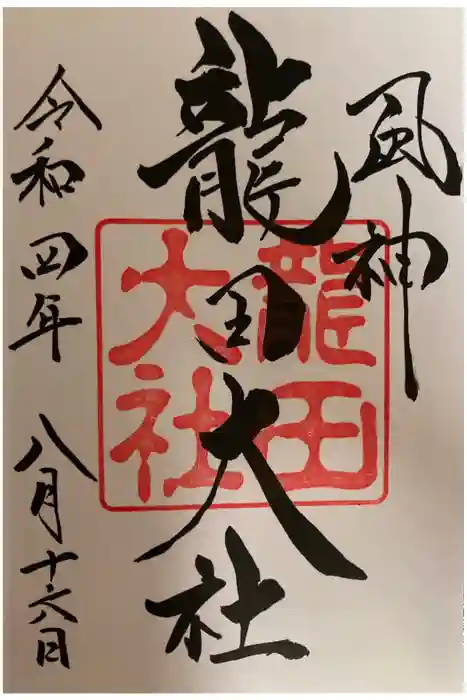 風神
龍田大社
龍田
大社
令和四年 八月十六日